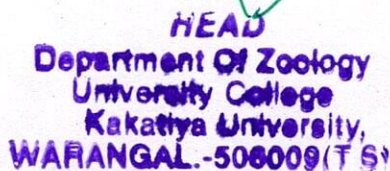 HEAD
Department Of Zoology
University College
Kakatiya University,
WARANGAL.-506009(T S)